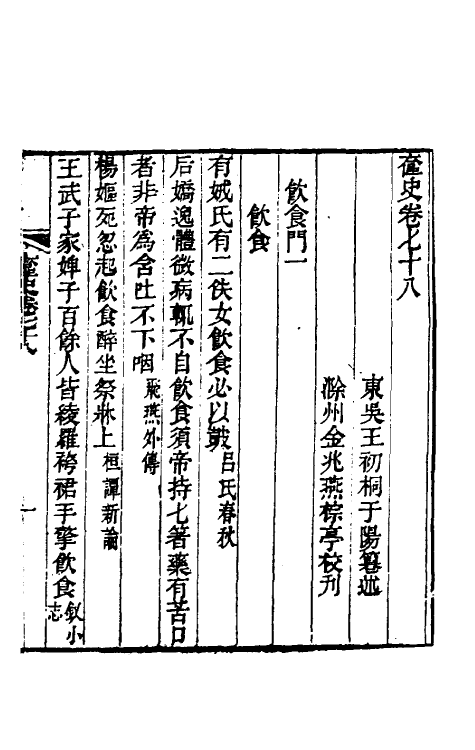 奩史卷七十八
東吳王初桐于陽纂述
滁州金兆燕棕亭校刊
飲食門一
飲食
有娀氏有二佚女飲食必以鼓 呂氏春秋
后嬌逸體微病輒不自飲食須帝持匕箸藥有苦口
者非帝為含吐不下咽 飛燕外傳
楊嫗死忽起飲食醉坐祭牀上 桓譚新論
王武子家婢子百餘人皆綾羅袴裙手擎飲食 釵小志
奩史卷七十八
一